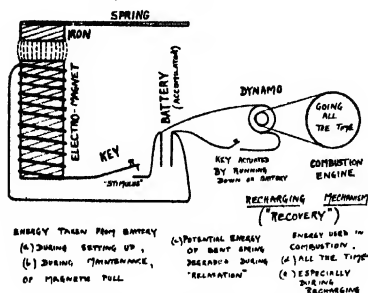 SPRING
IRON
ELECTRO-MAGNET
BATTERY
(ACCUMULATOR)
KEY
"STIMULUS"
DYNAMO
GOING
ALL
THE TIME
COMBUSTION
ENGINE
KEY ACTUATED
BY RUNNING
DOWN OF BATTERY
RECHARGING MECHANISM
("RECOVERY")
ENERGY TAKEN FROM BATTERY
(a) DURING SETTING UP,
(b) DURING MAINTENANCE,
OF MAGNETIC PULL
(c) POTENTIAL ENERGY
OF BENT SPRING
DEGRADED DURING
"RELAXATION"
ENERGY USED IN
COMBUSTION.
(d) ALL THE TIME
(e) ESPECIALLY
DURING
RECHARGING